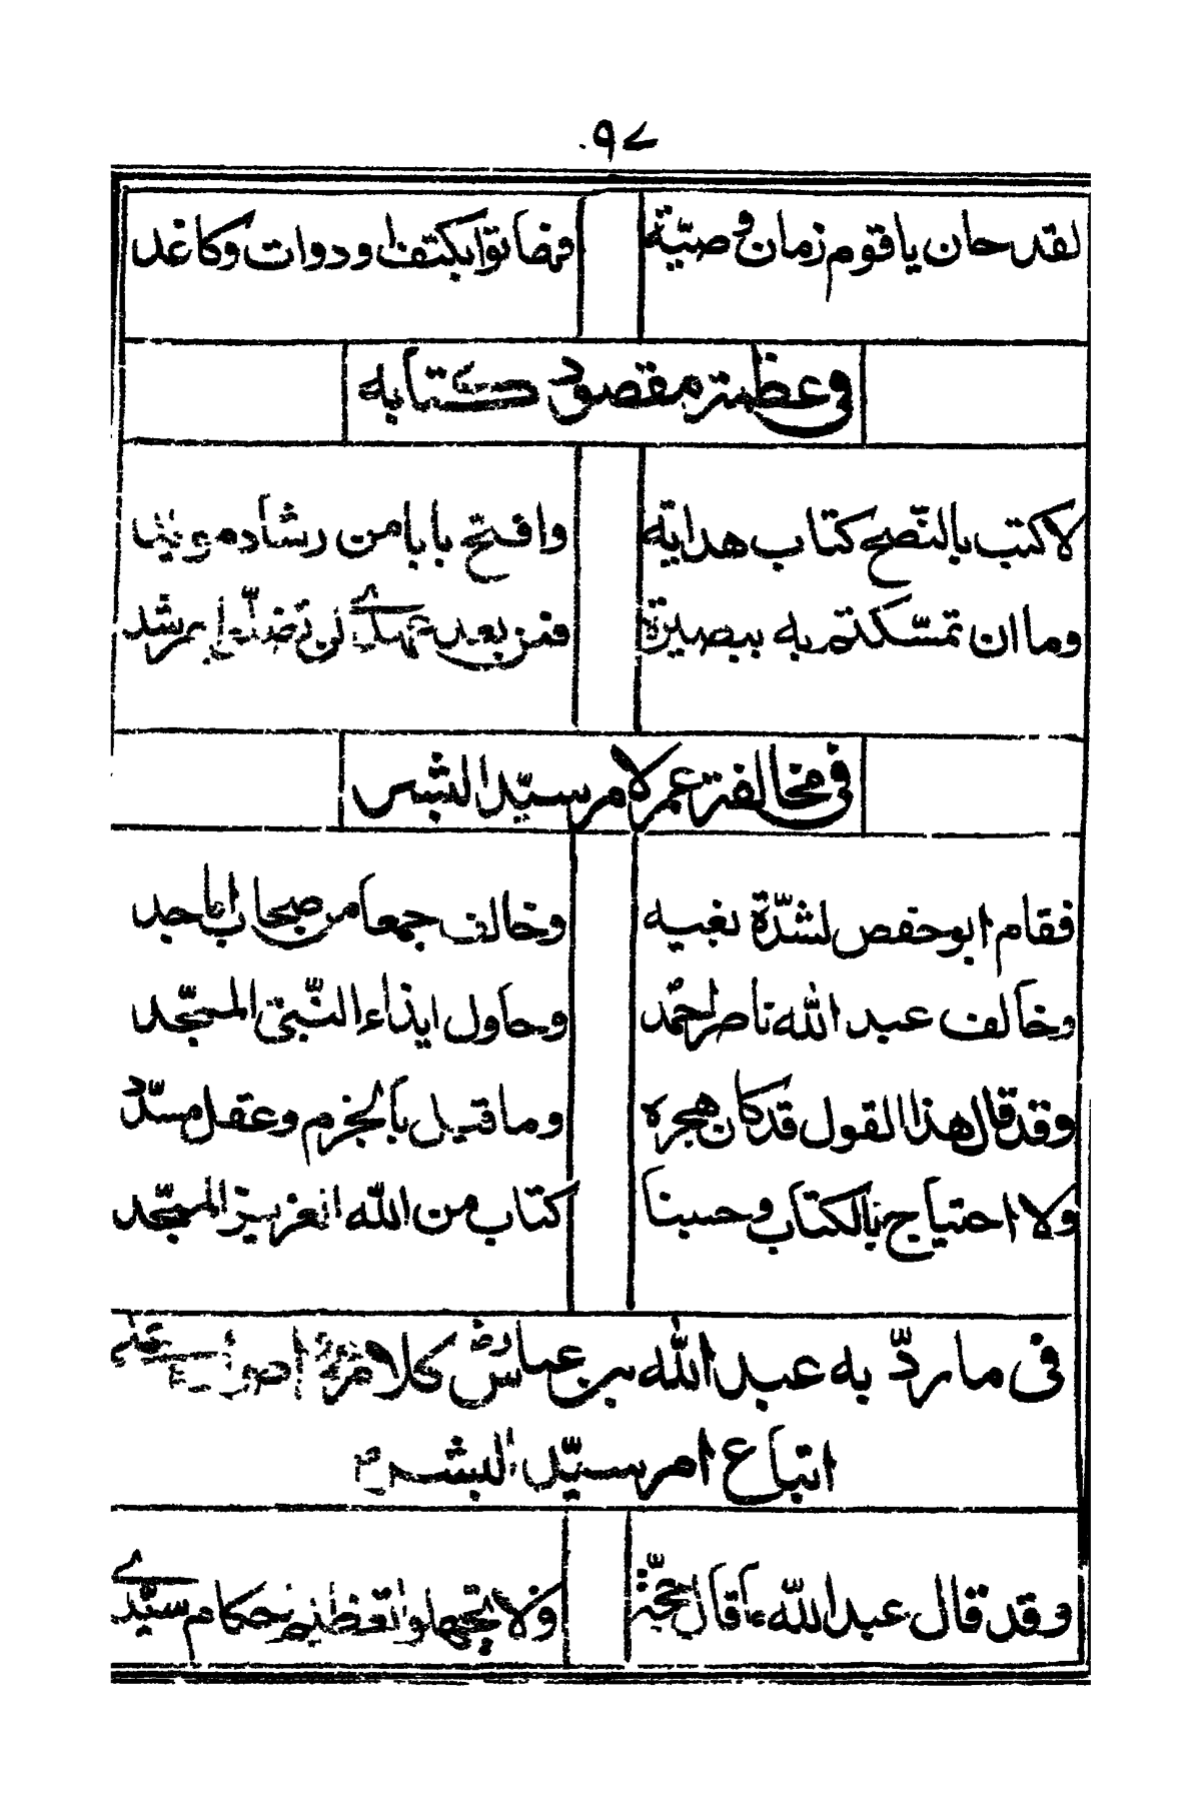 ٩٧
لقد حان يا قوم زمان وصيّة فهاتوا بكتف ودوات وكاغد
في عظمة مقصود كتابه
لاكتب بالنّصح كتاب هداية وافتح بابا من رشاد
وما ان تمسّكتم به ببصيرة فمن بعد عهدي لن تضلّوا بمرشد
في مخالفة عمر لامر سيّد البشر
فقام ابو حفص لشدّة بغيه وخالف جمعا من صحاب
وخالف عبد الله ناصر احمد وحاول ايذاء النّبيّ الممجّد
وقد قال هذا القول قد كان هجره وما قيل بالجزم وعقل مسدّد
ولا احتياج بالكتاب وحسبنا كتاب من الله العزيز الممجّد
في ما ردّ به عبد الله بن عباس كلام
اتباع امر سيّد البشر
وقد قال عبد الله قال حجّة ولا تجهلوا تعظيم حكام سيّدي